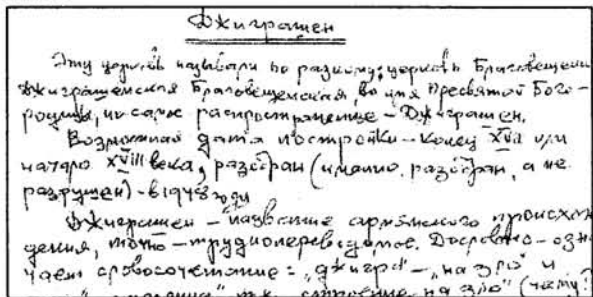 Джиграшен
Эту церковь называли по разному: церковь Благовещения
Джиграшенская Благовещенская, во имя Пресвятой Бого-
родицы, но самое распространенное – Джиграшен.
Возможная дата постройки – конец XVII или
начало XVIII века, разобран (именно разобран, а не
разрушен) – в 1948 году
Джиграшен – название армянского происхож
дения, точно – труднопереводимое. Дословно – озн
чает словосочетание: "джигра" – "на зло" и
т.е. строение на зло" (чему?